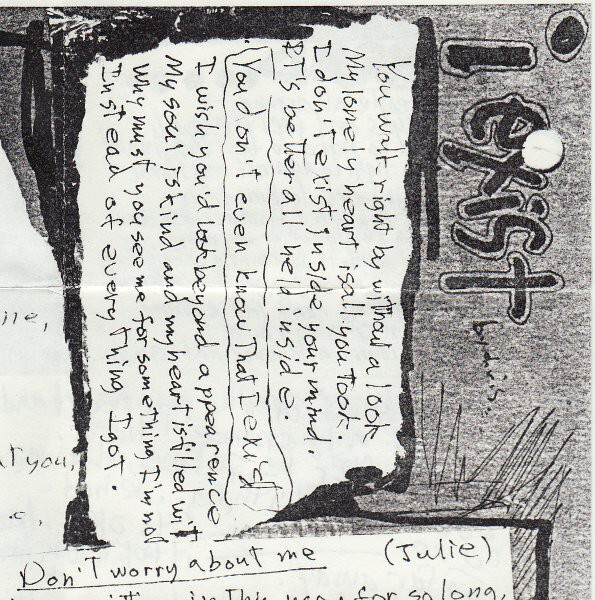 I exist
by dris.
You walk right by without a look
My lonely heart is all you took.
I don't exist inside your mind.
It's better all held inside.
You don't even know That I exist
I wish you'd look beyond appearence
My soul is kind and my heart is filled wit
Why must you see me for something I'm not
Instead of every Thing I got.
at you,
Don't worry about me (Julie)
in This for so long,